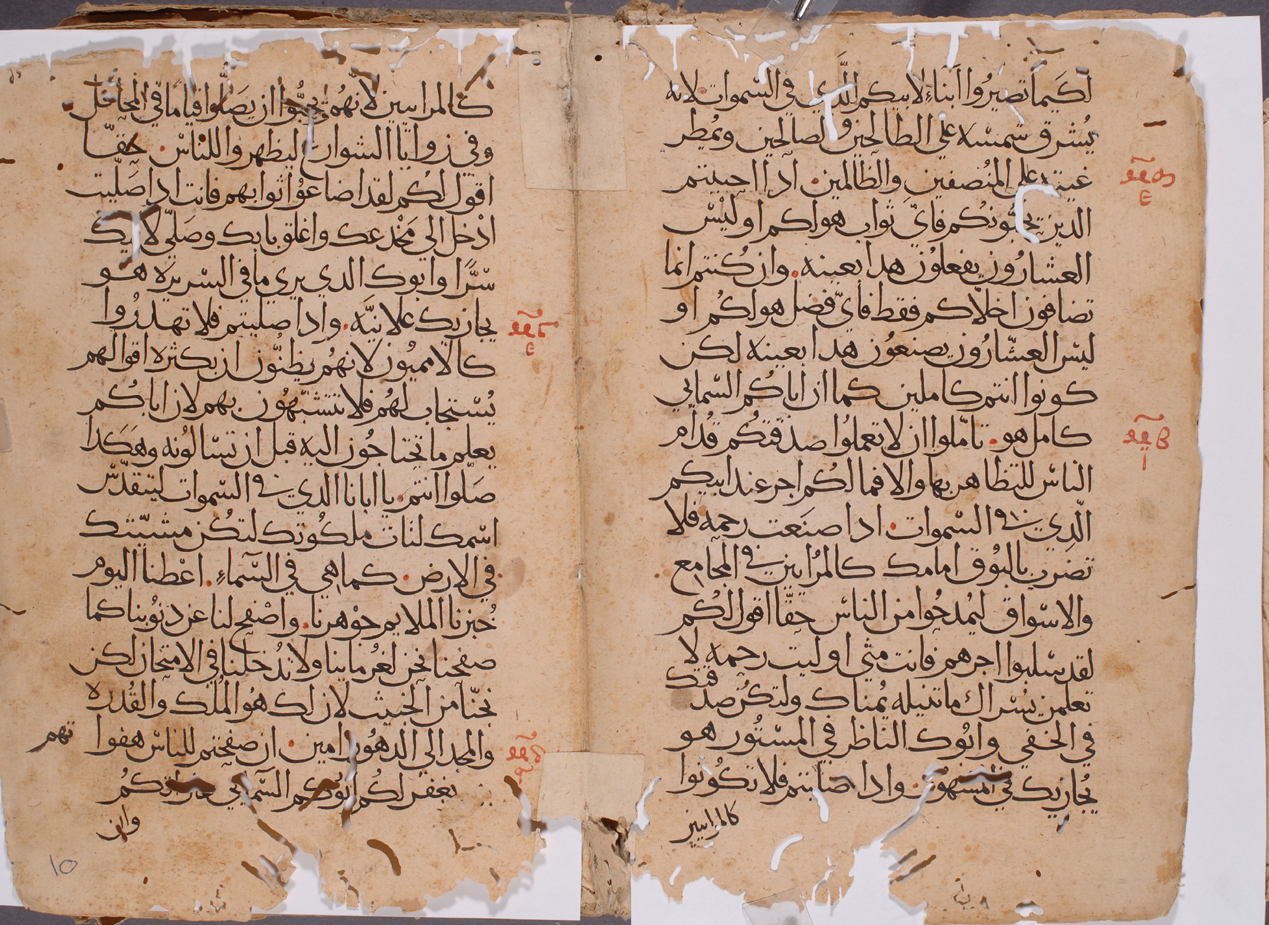 لكيما تصيروا ابناء لابيكم الذي في السموات لانه
يُشرق شمسه علي الطالحين والصالحين ويمطر
غيثه علي المنصفين والظالمين. اذا احببتم
الذين يحبونكم فايّ ثواب هو لكم او ليْسَ
العشارون يفعلون هذا بعينه. وان كنتم انما
تصافون اخلاكم فقط فايّ فضل هو لكُم او
ليْس العشّارون يصنعون هذا بعينه لكن
كونوا انتم كاملين كما ان اباكم السمايي
كامل هو. تامّلوا ان لا تعملوا صدقتكم قدام
الناس للتظاهر بها والا فما لكم اجر عند ابيكم
الّذي في السموات. اذا صنعت رحمه فلا
تضرب بالبوق امامك كالمرايين في المجامع
والاسواق ليُمدحُوا من الناس حقّا اقول لكُم
لقد سلبوا اجرهم فانت متي اوليت رحمه لا
تعلمن يسراك ما تنيله يُمناك ولتكن صدقتك
في الخفي وابُوك الناظر في المستُور هو
يُجازيك في المشهور. واذا صليتم فلا تكُونوا
كالمرايين
كالمرايين لانهُم يحبُّوا ان يصَلّوا قياما في المحافل
وفي زوايا الشوارع ليظهروا للناس. حقّا
اقول لكُم لقد اضاعُوا ثوابهم فانت اذا صَلّيت
ادْخل الي مَخْدعك واغلق بابك وصَلّي لابيك
سْرًّا وابوك الذي يري ما في السريره هو
يجازيك علانيَّه. واذا صليتم فلا تهذرُوا
كالامميُون لانهُم يظنُّون ان بكثره اقوالهم
يُستجاب لهُم فلا تتشبّهُون بهم لان اباكُم
يعلم ما تحتاجُون اليه قبل ان تسالُونه وهَكذا
صَلّوا انتم. يا ابانا الذي في السموات ليتقدّس
اسْمك لتات ملكُوتك لتكُن مشيّتك
في الارض. كما هي في السّماءِ. اعْطنا اليوم
خُبزنا الملايم جوْهرنا. واصْفح لنا عن ذنُوبنا كما
صفحنا نحن لغُرماينا ولا تُدخلنا في الامتحان لكن
نجّنا من الخبيث لان لك هُو المُلك والقُدره
والمجد الي الدهُور امين. ان صفحتم للناس هفوا
تهم
يغفر لكُم ابُوكم السّمايي هفواتكُم
وان
١٥